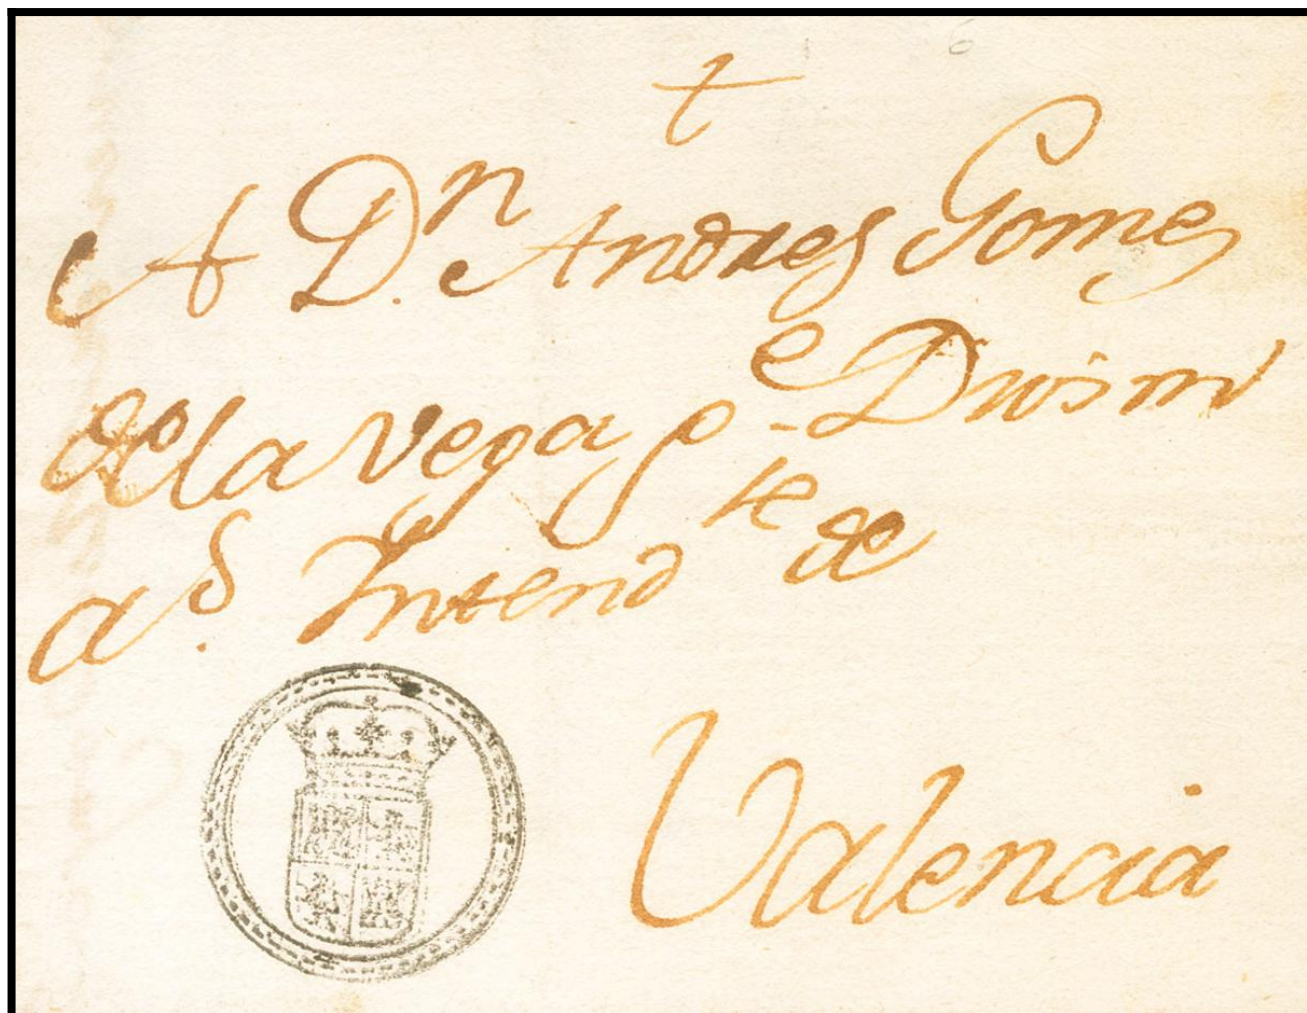 +
A Dn. Andres Gomez
de la Vega ge Dios m
as. Intendte de
Valencia